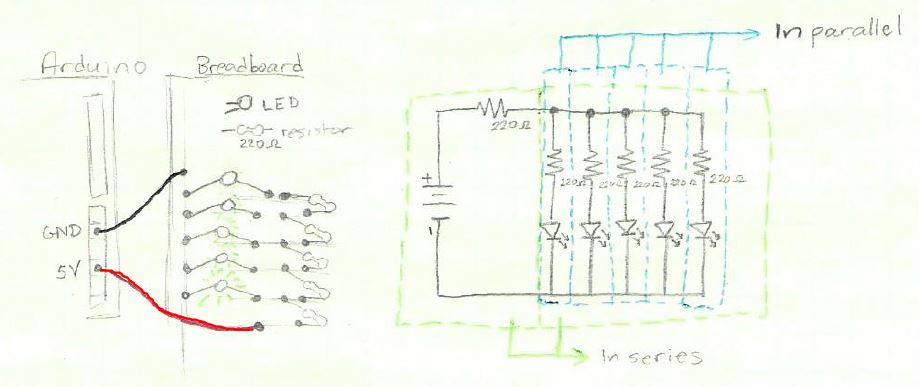 Arduino
Breadboard
LED
resistor
220Ω
GND
5V
In parallel
220Ω
+
220Ω
220Ω
220Ω
220Ω
220Ω
In series